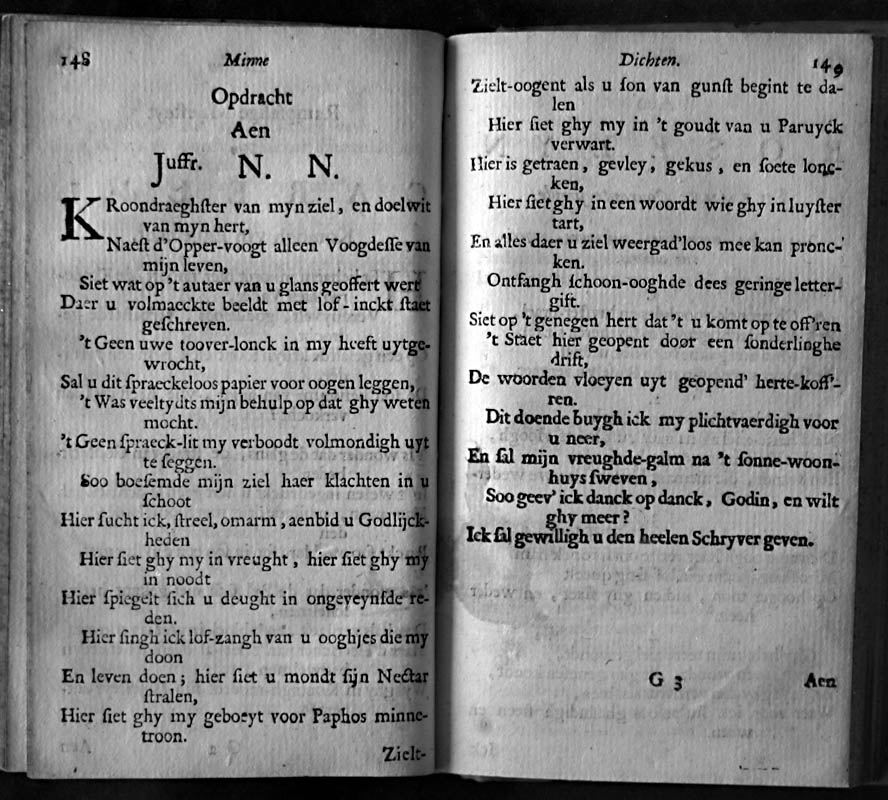 148 Minne
Opdracht
Aen
Juffr. N. N.
KRoondraeghſter van myn ziel, en doelwit
van myn hert,
Naeſt d'Opper-voogt alleen Voogdeſſe van
mijn leven,
Siet wat op 't autaer van u glans geoffert wert
Daer u volmaeckte beeldt met lof-inckt ſtaet
geſchreven.
't Geen uwe toover-lonck in my heeft uytge-
wrocht,
Sal u dit ſpraeckeloos papier voor oogen leggen,
't Was veeltydts mijn behulp op dat ghy weten
mocht.
't Geen ſpraeck-lit my verboodt volmondigh uyt
te ſeggen.
Soo boeſemde mijn ziel haer klachten in u
ſchoot
Hier ſucht ick, ſtreel, omarm, aenbid u Godlijck-
heden
Hier ſiet ghy my in vreught, hier ſiet ghy my
in noodt
Hier ſpiegelt ſich u deught in ongeveynſde re-
den.
Hier ſingh ick lof-zangh van u ooghjes die my
doon
En leven doen; hier ſiet u mondt ſijn Nectar
ſtralen,
Hier ſiet ghy my geboeyt voor Paphos minne-
troon.
Zielt-
Dichten. 149
Zielt-oogent als u ſon van gunſt begint te da-
len
Hier ſiet ghy my in 't goudt van u Paruyck
verwart.
Hier is getraen, gevley, gekus, en ſoete lonc-
ken,
Hier ſiet ghy in een woordt wie ghy in luyſter
tart,
En alles daer u ziel weergad'loos mee kan pronc-
ken.
Ontfangh ſchoon-ooghde dees geringe letter-
gift.
Siet op 't genegen hert dat 't u komt op te off'ren
't Staet hier geopent door een ſonderlinghe
drift,
De woorden vloeyen uyt geopend' herte-koff'-
ren.
Dit doende buygh ick my plichtvaerdigh voor
u neer,
En ſal mijn vreughde-galm na 't ſonne-woon-
huys ſweven,
Soo geev' ick danck op danck, Godin, en wilt
ghy meer?
Ick ſal gewilligh u den heelen Schryver geven.
G 3 Aen